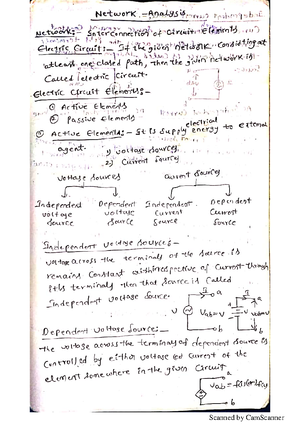 Network - Analysis
Network:- Interconnection of Circuit Elements
Electric Circuit:- If the given network consisting at
atleast one closed path, then the given network is
Called electric circuit.
Electric Circuit Elements:-
① Active Elements
② Passive Elements
electrical
① Active Elements:- It is supply energy to external
agent.
1) voltage sources
2) Current sources
Voltage sources
Current sources
Independent
voltage
source
Dependent
voltage
source
Independent
Current
Source
Dependent
Current
Source
Independent Voltage Sources:-
Voltage across the terminals of the source is
remains Constant with irrespective of Current through
its terminals then that source is Called
Independent voltage source.
Dependent Voltage Source:-
the voltage across the terminals of dependent source is
Controlled by either voltage (or) Current of the
element somewhere in the given Circuit
a
b
Scanned by CamScanner